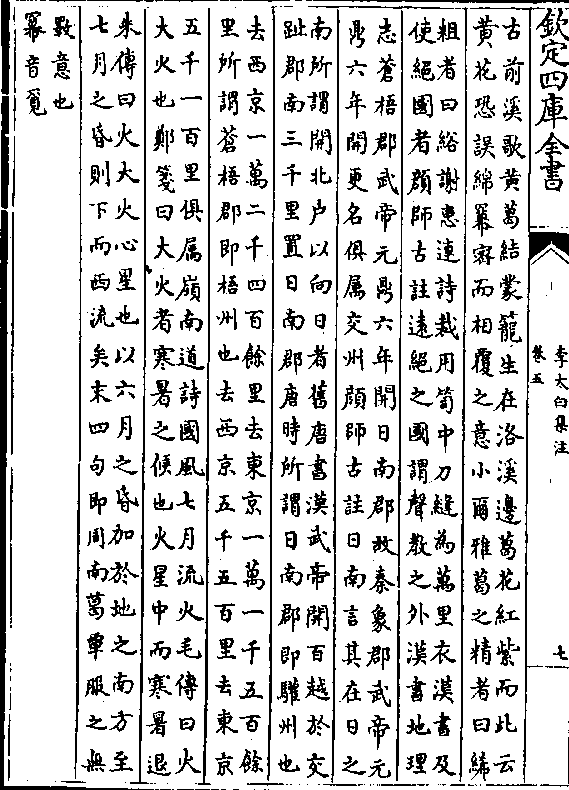 欽定四庫全書
李太白集注
卷五
七
古前溪歌黄葛結蒙籠生在洛溪邊葛花紅紫而此云
黄花恐誤綿羃宻而相覆之意小爾雅葛之精者曰絺
粗者曰綌謝惠連詩裁用笥中刀縫為萬里衣漢書及
使絶國者顔師古註遠絶之國謂聲教之外漢書地理
志蒼梧郡武帝元鼎六年開日南郡故秦象郡武帝元
鼎六年開更名俱属交州顔師古註日南言其在日之
南所謂開北户以向日者舊唐書漢武帝開百越於交
趾郡南三千里置日南郡唐時所謂日南郡即驩州也
去西京一萬二千四百餘里去東京一萬一千五百餘
里所謂蒼梧郡即梧州也去西京五千五百里去東京
五千一百里俱属嶺南道詩國風七月流火毛傳曰火
大火也鄭箋曰大火者寒暑之候也火星中而寒暑退
朱傳曰火大火心星也以六月之昏加於地之南方至
七月之昏則下而西流矣末四句即周南葛覃服之無
斁意也
羃音覓